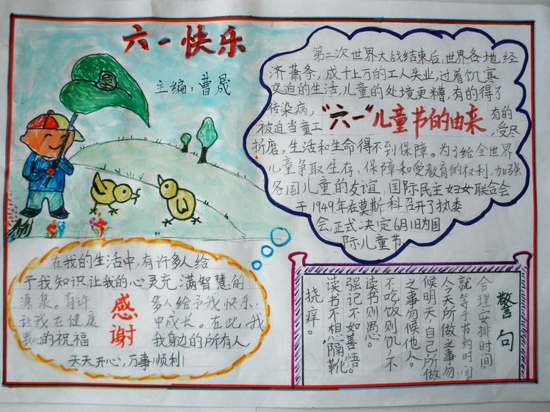 六一快乐
主编:曹晟
第二次世界大战结束后,世界各地,经
济萧条,成千上万的工人失业,过着饥寒
交迫的生活,儿童的处境更糟,有的得了
传染病,
"六一"儿童节的由来
有的
被迫当童工
,受尽
折磨,生活和生命得不到保障。为了给全世界
儿童争取生存、保障和受教育的权利,加强
各国儿童的友谊,国际民主妇女联合会
于1949年在莫斯科召开了执委
会,正式决定6月1日为国
际儿童节
在我的生活中,有许多人给
予我知识让我的心灵充满智慧的
源泉。有许多人给予我快乐,
让我在健康中成长。在此,我
衷心的祝福我身边的所有人
天天开心,万事顺利!
感谢
警句
合理安排时间
就等于节约时间
今天所做之事勿
候明天,自己所做
之事勿候他人。
不吃饭则饥,不
读书则愚。
强记不如善悟。
读书不想隔靴
挠痒。